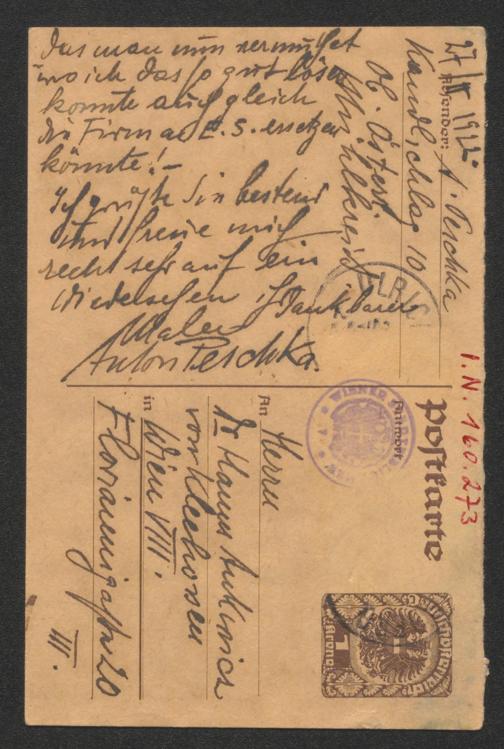 Das man nun vermutet
wo ich das so gut lösen
konnte auch gleich
die Firma E. S. ersetzen
könnte! –
Ich grüße Sie bestens
und freue mich
recht sehr auf ein
Wiedersehen Ihr Dankbarer
Maler
Anton Peschka.
27/II 1922.
Absender: A. Peschka
Kandlschlag 10
Ob. Österr.
Mühlkreis
ULRIC
Postkarte
Antwort
WIENER
I. N. 160.273
An Herrn
Dr Hanns Ankwicz
von Kleehoven
in Wien VIII.
Florianigasse 20
III.
Deutschösterreich
1 Krone